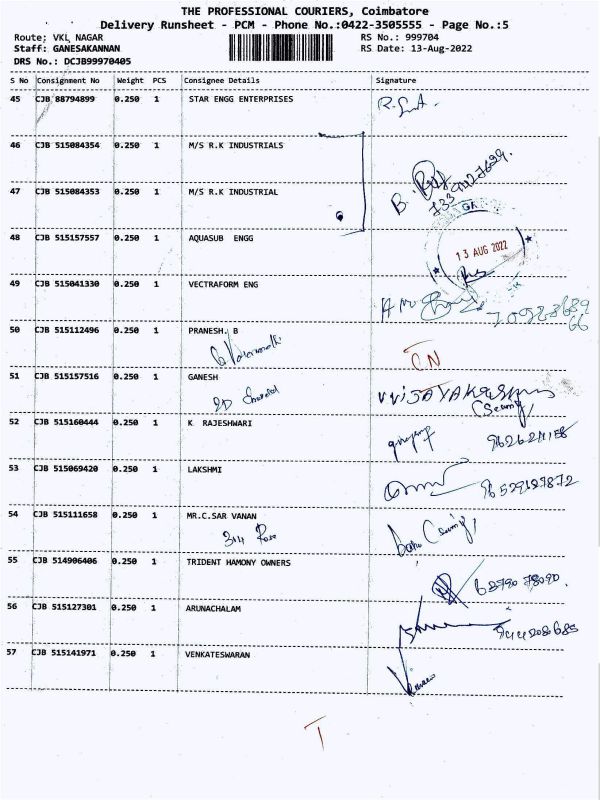 THE PROFESSIONAL COURIERS, Coimbatore
Delivery Runsheet - PCM - Phone No.:0422-3505555 - Page No.:5
Route; VKL NAGAR RS No.: 999704
Staff: GANESAKANNAN RS Date: 13-Aug-2022
DRS No.: DCJB99970405
S No Consignment No Weight PCS Consignee Details Signature
45 CJB 88794899 0.250 1 STAR ENGG ENTERPRISES
46 CJB 515084354 0.250 1 M/S R.K INDUSTRIALS
47 CJB 515084353 0.250 1 M/S R.K INDUSTRIAL
48 CJB 515157557 0.250 1 AQUASUB ENGG
13 AUG 2022
49 CJB 515041330 0.250 1 VECTRAFORM ENG
50 CJB 515112496 0.250 1 PRANESH. B
CN
51 CJB 515157516 0.250 1 GANESH
52 CJB 515160444 0.250 1 K RAJESHWARI
53 CJB 515069420 0.250 1 LAKSHMI
54 CJB 515111658 0.250 1 MR.C.SAR VANAN
55 CJB 514906406 0.250 1 TRIDENT HAMONY OWNERS
56 CJB 515127301 0.250 1 ARUNACHALAM
57 CJB 515141971 0.250 1 VENKATESWARAN